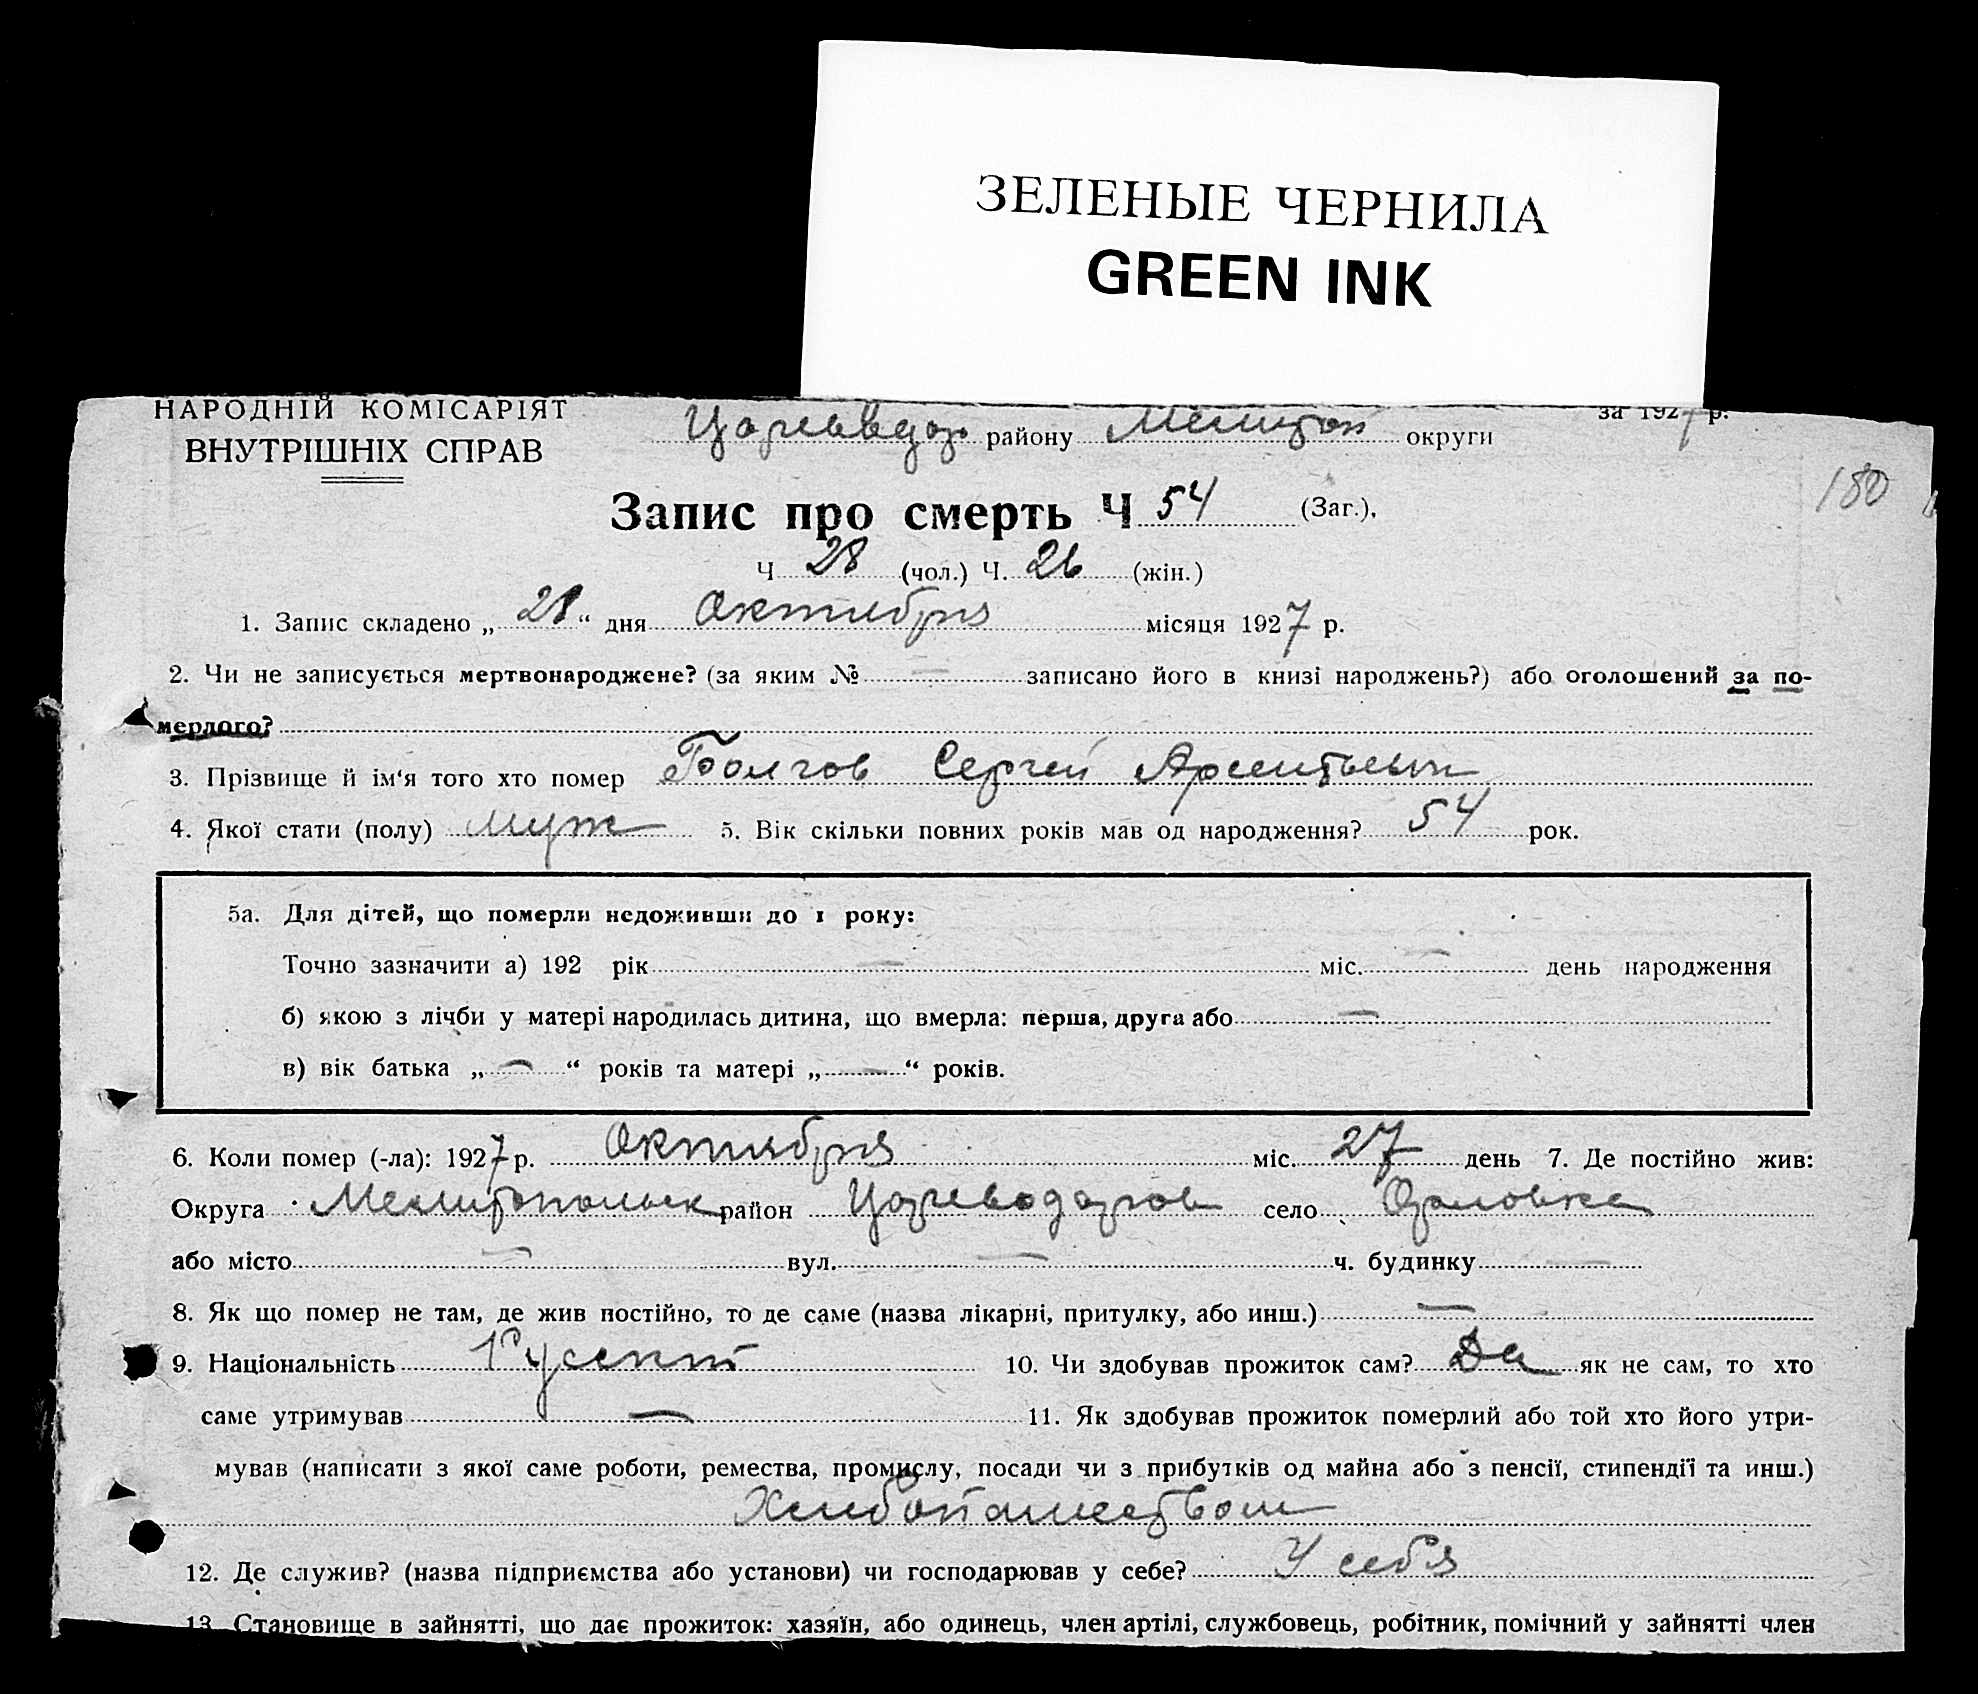 ЗЕЛЕНЫЕ ЧЕРНИЛА
GREEN INK
НАРОДНІЙ КОМІСАРІЯТ
ВНУТРІШНІХ СПРАВ
за 1927 р.
району Мелитоп округи
180
Запис про смерть Ч 54 (Заг.),
Ч 28 (чол.) Ч. 26 (жін.)
1. Запис складено „ 28 “ дня Октября місяця 1927 р.
2. Чи не записується мертвонароджене? (за яким № — записано його в книзі народжень?) або оголошений за по-
мерлого?
3. Прізвище й ім‘я того хто помер Болгов Сергей Арсентьевич
4. Якої стати (полу) муж 5. Вік скільки повних років мав од народження? 54 рок.
5а. Для дітей, що померли недоживши до 1 року:
Точно зазначити а) 192 рік — міс. — день народження
б) якою з лічби у матері народилась дитина, що вмерла: перша, друга або —
в) вік батька „ — “ років та матері „ — “ років.
6. Коли помер (-ла): 1927 р. Октября міс. 27 день 7. Де постійно жив:
Округа Мелитопольск район Цареводаров село Орловка
або місто — вул. — ч. будинку —
8. Як що помер не там, де жив постійно, то де саме (назва лікарні, притулку, або инш.) —
9. Національність Русский 10. Чи здобував прожиток сам? Да як не сам, то хто
саме утримував — 11. Як здобував прожиток померлий або той хто його утри-
мував (написати з якої саме роботи, ремества, промислу, посади чи з прибутків од майна або з пенсії, стипендії та инш.)
Хлебопашеством
12. Де служив? (назва підприємства або установи) чи господарював у себе? У себя
13. Становище в зайнятті, що дає прожиток: хазяїн, або одинець, член артілі, службовець, робітник, помічний у зайнятті член